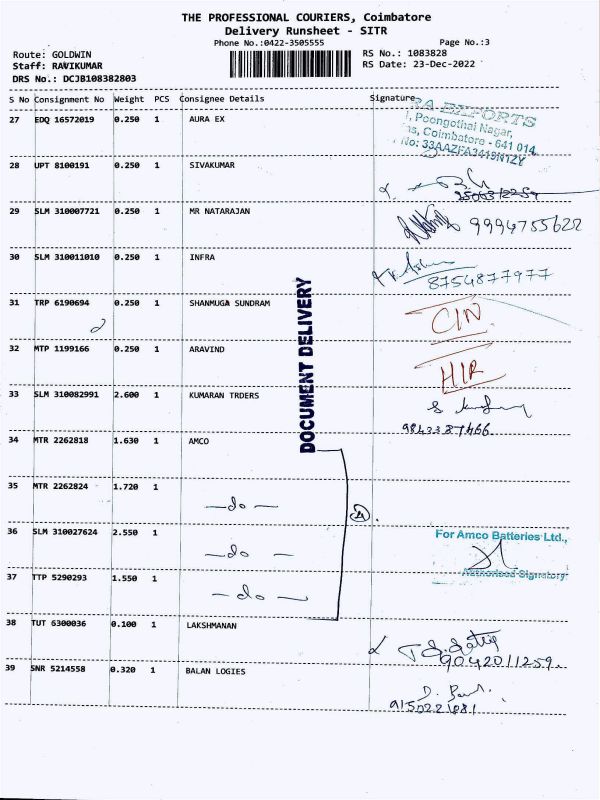 THE PROFESSIONAL COURIERS, Coimbatore
Delivery Runsheet - SITR
Phone No.:0422-3505555 Page No.:3
Route: GOLDWIN RS No.: 1083828
Staff: RAVIKUMAR RS Date: 23-Dec-2022
DRS No.: DCJB108382803
S No Consignment No Weight PCS Consignee Details Signature
27 EDQ 16572019 0.250 1 AURA EX
RA EXPORTS
Poongothai Nagar,
Coimbatore - 641 014.
No: 33AAZFA3419N1ZY
28 UPT 8100191 0.250 1 SIVAKUMAR
29 SLM 310007721 0.250 1 MR NATARAJAN
9994755622
30 SLM 310011010 0.250 1 INFRA
8754877977
31 TRP 6190694 0.250 1 SHANMUGA SUNDRAM
CIN
32 MTP 1199166 0.250 1 ARAVIND
HIR
33 SLM 310082991 2.600 1 KUMARAN TRDERS
9843387466
34 MTR 2262818 1.630 1 AMCO
35 MTR 2262824 1.720 1
—do—
4
36 SLM 310027624 2.550 1
—do—
For Amco Batteries Ltd.,
37 TTP 5290293 1.550 1
—do—
Authorised Signatory
38 TUT 6300036 0.100 1 LAKSHMANAN
9042011259.
39 SNR 5214558 0.320 1 BALAN LOGIES
9150221081
DOCUMENT DELIVERY